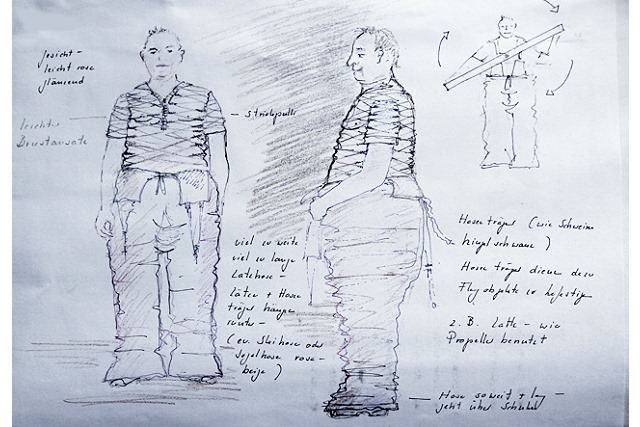 Gesicht -
leicht rosa
glänzend
leichter
Brustansatz
- Strickpulli
viel zu weite
viel zu lange
Latzhose -
Lätze + Hosen
träger hangen
runter -
(ev. Skihose oder
Segelhose rosa-
beige)
Hosenträger (wie Schweine
kringel schwanz)
Hosenträger dienen dazu
Flugobjekte zu befestigen
z. B. Latte - wie
Propeller benutzt
Hose so weit + lang -
geht über Schuhe